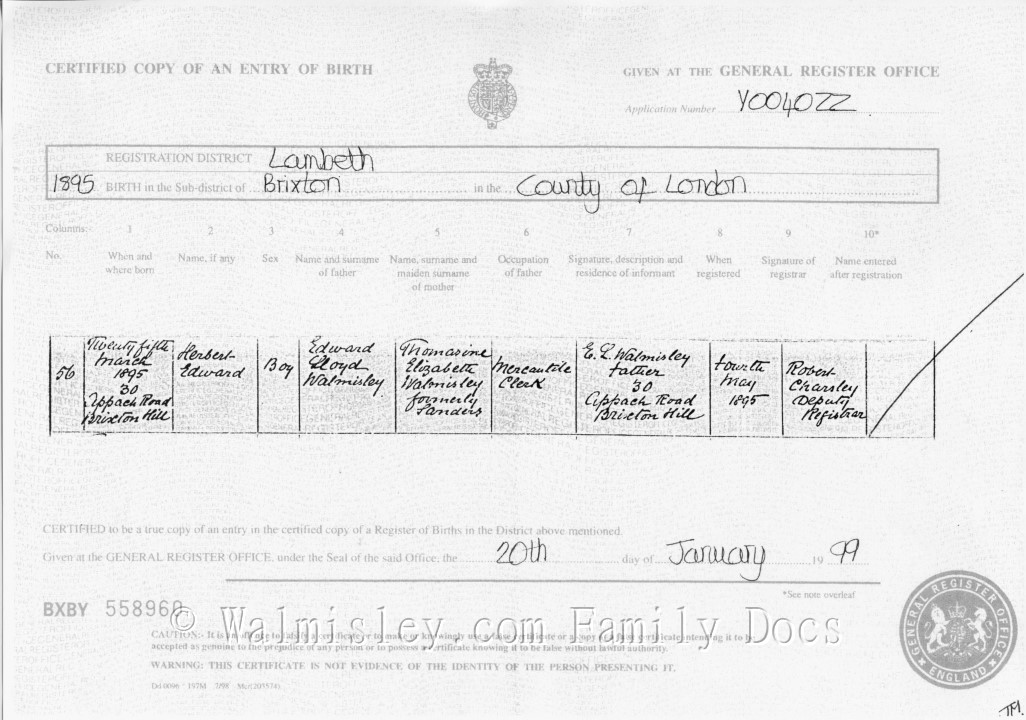 CERTIFIED COPY OF AN ENTRY OF BIRTH
GIVEN AT THE GENERAL REGISTER OFFICE
Application Number Y004022
REGISTRATION DISTRICT Lambeth
1895 BIRTH in the Sub-district of Brixton in the County of London
Columns:- 1 2 3 4 5 6 7 8 9 10*
No.
When and
where born
Name, if any
Sex
Name and surname
of father
Name, surname and
maiden surname
of mother
Occupation
of father
Signature, description and
residence of informant
When
registered
Signature of
registrar
Name entered
after registration
56
Twenty fifth
March
1895
30
Appach Road
Brixton Hill
Herbert
Edward
Boy
Edward
Lloyd
Walmisley
Thomasine
Elizabeth
Walmisley
formerly
Sanders
Mercantile
Clerk
E. L. Walmisley
Father
30
Appach Road
Brixton Hill
Fourth
May
1895
Robert
Charsley
Deputy
Registrar
CERTIFIED to be a true copy of an entry in the certified copy of a Register of Births in the District above mentioned.
Given at the GENERAL REGISTER OFFICE, under the Seal of the said Office, the 20th day of January 19 99
*See note overleaf
BXBY 558960
© Walmisley.com Family Docs
CAUTION:- It is an offence to falsify a certificate or to make or knowingly use a false certificate or a copy of a false certificate intending it to be
accepted as genuine to the prejudice of any person or to possess a certificate knowing it to be false without lawful authority.
WARNING: THIS CERTIFICATE IS NOT EVIDENCE OF THE IDENTITY OF THE PERSON PRESENTING IT.
GENERAL REGISTER OFFICE
ENGLAND